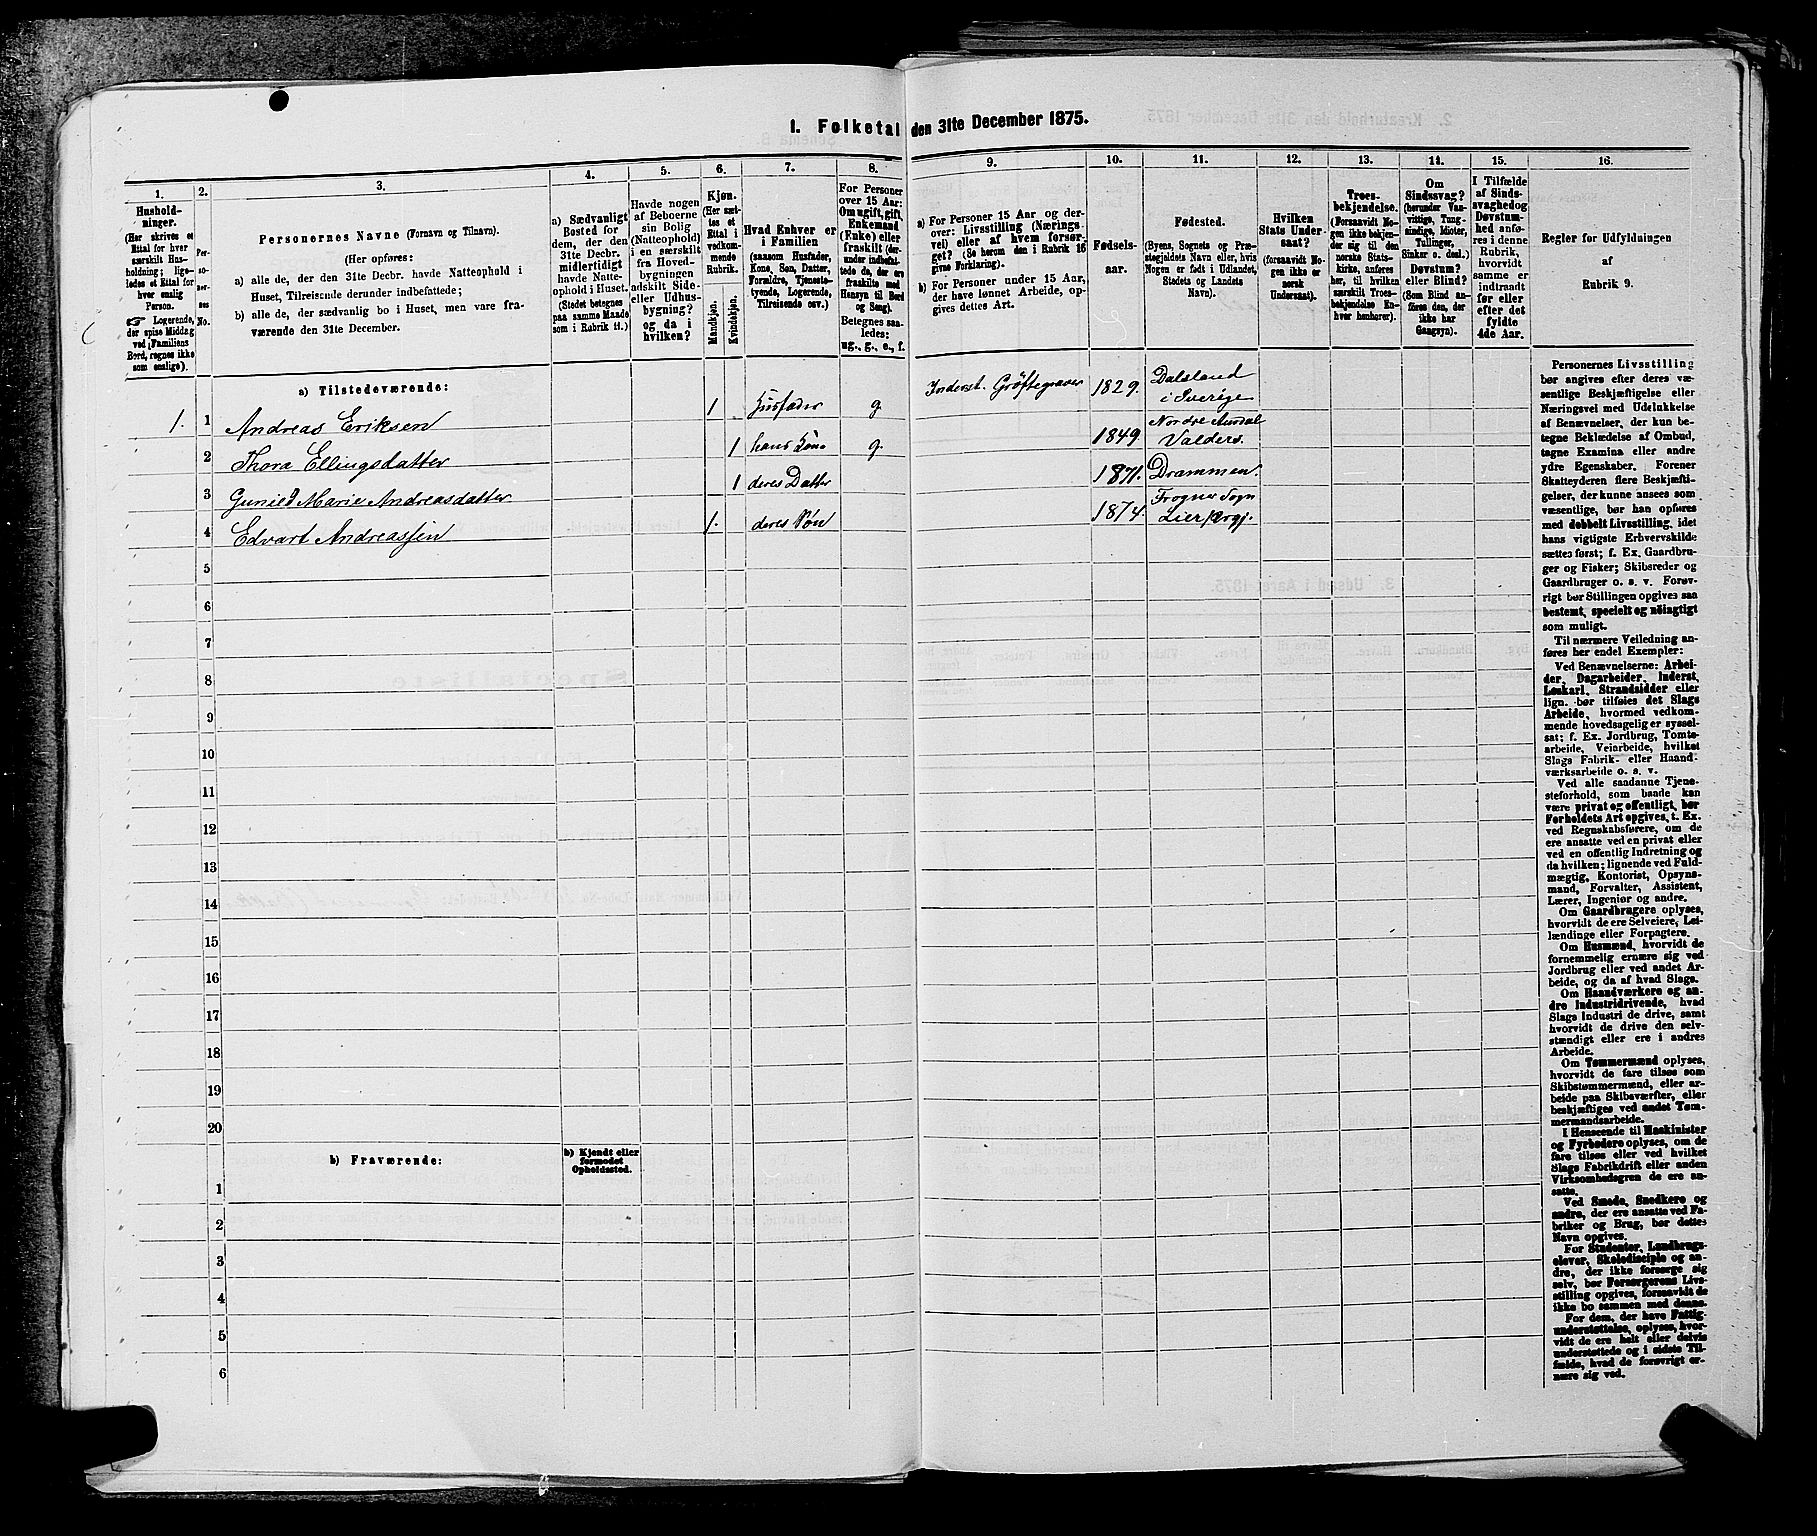 1. Folketal den 31te December 1875.
1.
2.
3.
4.
5.
6.
7.
8.
9.
10.
11.
12.
13.
14.
15.
16.
Husholdninger.
(Her skrives et Ettal for hver særskilt Husholdning; ligeledes et Ettal for hver enslig Person.
☞ Logerende, der spise Middag ved Familiens Bord, regnes ikke som enslige).
Personernes No.
Personernes Navne (Fornavn og Tilnavn).
(Her opføres:
a) alle de, der den 31te Decbr. havde Natteophold i
Huset, Tilreisende derunder indbefattede;
b) alle de, der sædvanlig bo i Huset, men vare fra-
værende den 31te December.
a) Sædvanligt
Bosted for
dem, der den
31te Decbr.
midlertidigt
havde Natte-
ophold i Huset.
(Stedet betegnes
paa samme Maade
som i Rubrik 11.)
Havde nogen
af Beboerne
sin Bolig
(Natteophold)
i en særskilt
fra Hoved-
bygningen
adskilt Side-
eller Udhus-
bygning?
og da i
hvilken?
Kjøn.
(Her sæt-
tes et
Ettal i
vedkom-
mende
Rubrik.
Mandkjøn.
Kvindekjøn.
Hvad Enhver er
i Familien
(saasom Husfader,
Kone, Søn, Datter,
Forældre, Tjeneste-
tyende, Logerende,
Tilreisende osv.)
For Personer
over 15 Aar:
Om ugift, gift,
Enkemand
(Enke) eller
fraskilt (der-
under indbefat-
tede de, der ere
fraskilte med
Hensyn til Bord
og Seng).
Betegnes saa-
ledes:
ug., g., e., f.
a) For Personer 15 Aar og der-
over: Livsstilling (Nærings-
vei) eller af hvem forsør-
get? (Se herom den i Rubrik 16
givne Forklaring).
b) For Personer under 15 Aar,
der have lønnet Arbeide, op-
gives dettes Art.
Fødsels-
aar.
Fødested.
(Byens, Sognets og Præ-
stegjeldets Navn eller, hvis
Nogen er født i Udlandet,
Stedets og Landets
Navn).
Hvilken
Stats Under-
saat?
(forsaavidt No-
gen ikke er
norsk
Undersaat).
Troes-
bekjendelse.
(Forsaavidt No-
gen ikke bekjen-
der sig til den
norske Stats-
kirke, anføres
her, til hvilken
særskilt Troes-
bekjendelse En-
hver henhører).
Om
Sindssvag?
(herunder Van-
vittige, Tung-
sindige, Idioter,
Tullinger,
Sinker o. desl.)
Døvstum?
eller Blind?
(Som Blind an-
føres den, der
ikke har
Gangsyn).
I Tilfælde
af Sinds-
svaghed og
Døvstum-
hed anfø-
res i denne
Rubrik,
hvorvidt
samme er
indtraadt
før eller
efter det
fyldte
4de Aar.
Regler for Udfyldningen
af
Rubrik 9.
a) Tilstedeværende:
1. 1 Andreas Eriksen 1 Husfader g. Inderst. Grøftegraver 1829. Dalsland i Sverige
2 Thora Ellingsdatter 1 hans Kone g. 1849. Nordre Aurdal Valders.
3 Gunild Marie Andreasdatter 1 deres Datter 1871. Drammen.
4 Edvart Andreassen 1. deres Søn 1874. Frogner Sogn Lier Prgj.
5
6
7
8
9
10
11
12
13
14
15
16
17
18
19
20
b) Fraværende:
b) Kjendt eller
formodet
Opholdssted.
1
2
3
4
5
6
Personernes Livsstilling
bør angives efter deres væ-
sentlige Beskjæftigelse eller
Næringsvei med Udelukkelse
af Benævnelser, der kun be-
tegne Beklædelse af Ombud,
tagne Examina eller andre
ydre Egenskaber. Forener
Skatteyderen flere Beskjæfti-
gelser, der kunne ansees som
væsentlige, bør han opføres
med dobbelt Livsstilling, idet
hans vigtigste Erhvervskilde
sættes først; f. Ex. Gaardbru-
ger og Fisker; Skibsreder og
Gaardbruger o. s. v. Forøv-
rigt bør Stillingen opgives saa
bestemt, specielt og nöiagtigt
som muligt.
Til nærmere Veiledning an-
føres her endel Exempler:
Ved Benævnelserne: Arbei-
der, Dagarbeider, Inderst,
Løskarl, Strandsidder eller
lign. bør tilføies det Slags
Arbeide, hvormed vedkom-
mende hovedsagelig er syssel-
sat; f. Ex. Jordbrug, Tomte-
arbeide, Veiarbeide, hvilket
Slags Fabrik- eller Haand-
værksarbeide o. s. v.
Ved alle saadanne Tjene-
steforhold, som baade kan
være privat og offentligt, bør
Forholdets Art opgives, t. Ex.
ved Regnskabsførere, om de
ere ansatte ved en privat eller
ved en offentlig Indretning og
da hvilken; lignende ved Fuld-
mægtig, Kontorist, Opsyns-
mand, Forvalter, Assistent,
Lærer, Ingeniør og andre.
Om Gaardbrugere oplyses,
hvorvidt de ere Selveiere, Lei-
lændinge eller Forpagtere.
Om Husmænd, hvorvidt de
fornemmelig ernære sig ved
Jordbrug eller ved andet Ar-
beide, og da af hvad Slags.
Om Haandværkere og an-
dre Industridrivende, hvad
Slags Industri de drive, samt
hvorvidt de drive den selv-
stændigt eller ere i andres
Arbeide.
Om Tømmermænd oplyses,
hvorvidt de fare tilsøs som
Skibstømmermænd, eller ar-
beide paa Skibsværfter, eller
beskjæftiges ved andet Tøm-
mermandsarbeide.
I Henseende til Maskinister
og Fyrbødere oplyses, om de
fare tilsøs eller ved hvilket
Slags Fabrikdrift eller anden
Virksomhedsgren de ere an-
satte.
Ved Smede, Snedkere og
andre, der ere ansatte ved Fa-
briker og Brug, bør dettes
Navn opgives.
For Studenter, Landbrugs-
elever, Skoledisciple og an-
dre, der ikke forsørge sig
selv, bør Forsørgerens Livs-
stilling opgives, forsaavidt de
ikke bo sammen med denne.
For dem, der have Fattig-
understøttelse, oplyses, hvor-
vidt de ere helt eller delvis
understøttede og i sidste Til-
fælde, hvad de forøvrigt er-
nære sig ved.